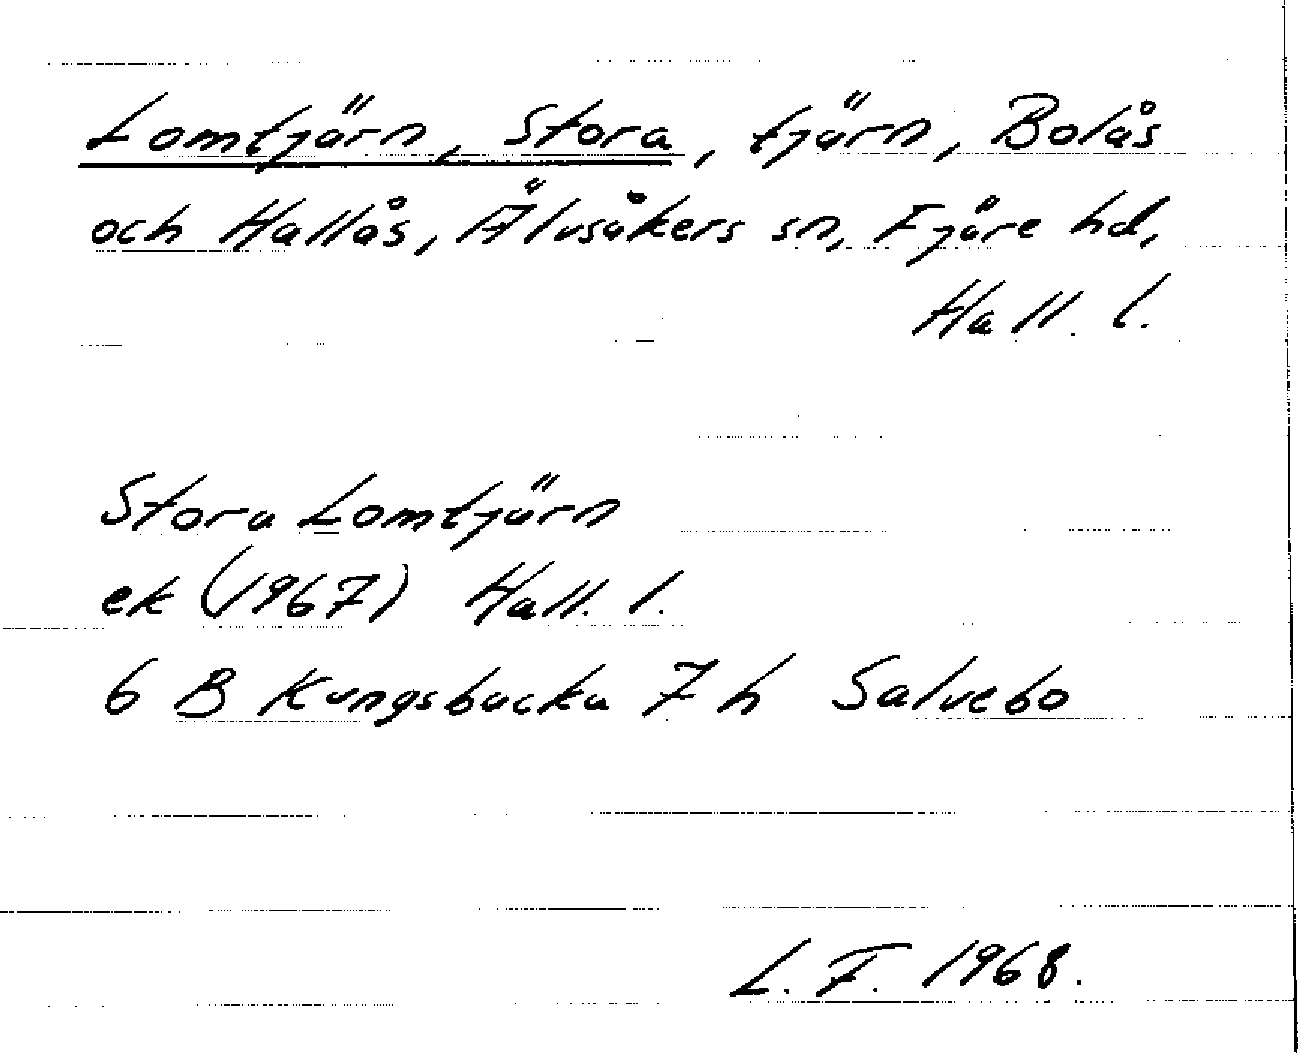 Lomtjärn, Stora, tjärn, Bolås
och Hallås, Älvsåkers sn, Fjäre hd,
Hall. l.
Stora Lomtjärn
ek (1967) Hall. l.
6 B Kungsbacka 7 h Salvebo
L. F. 1968.